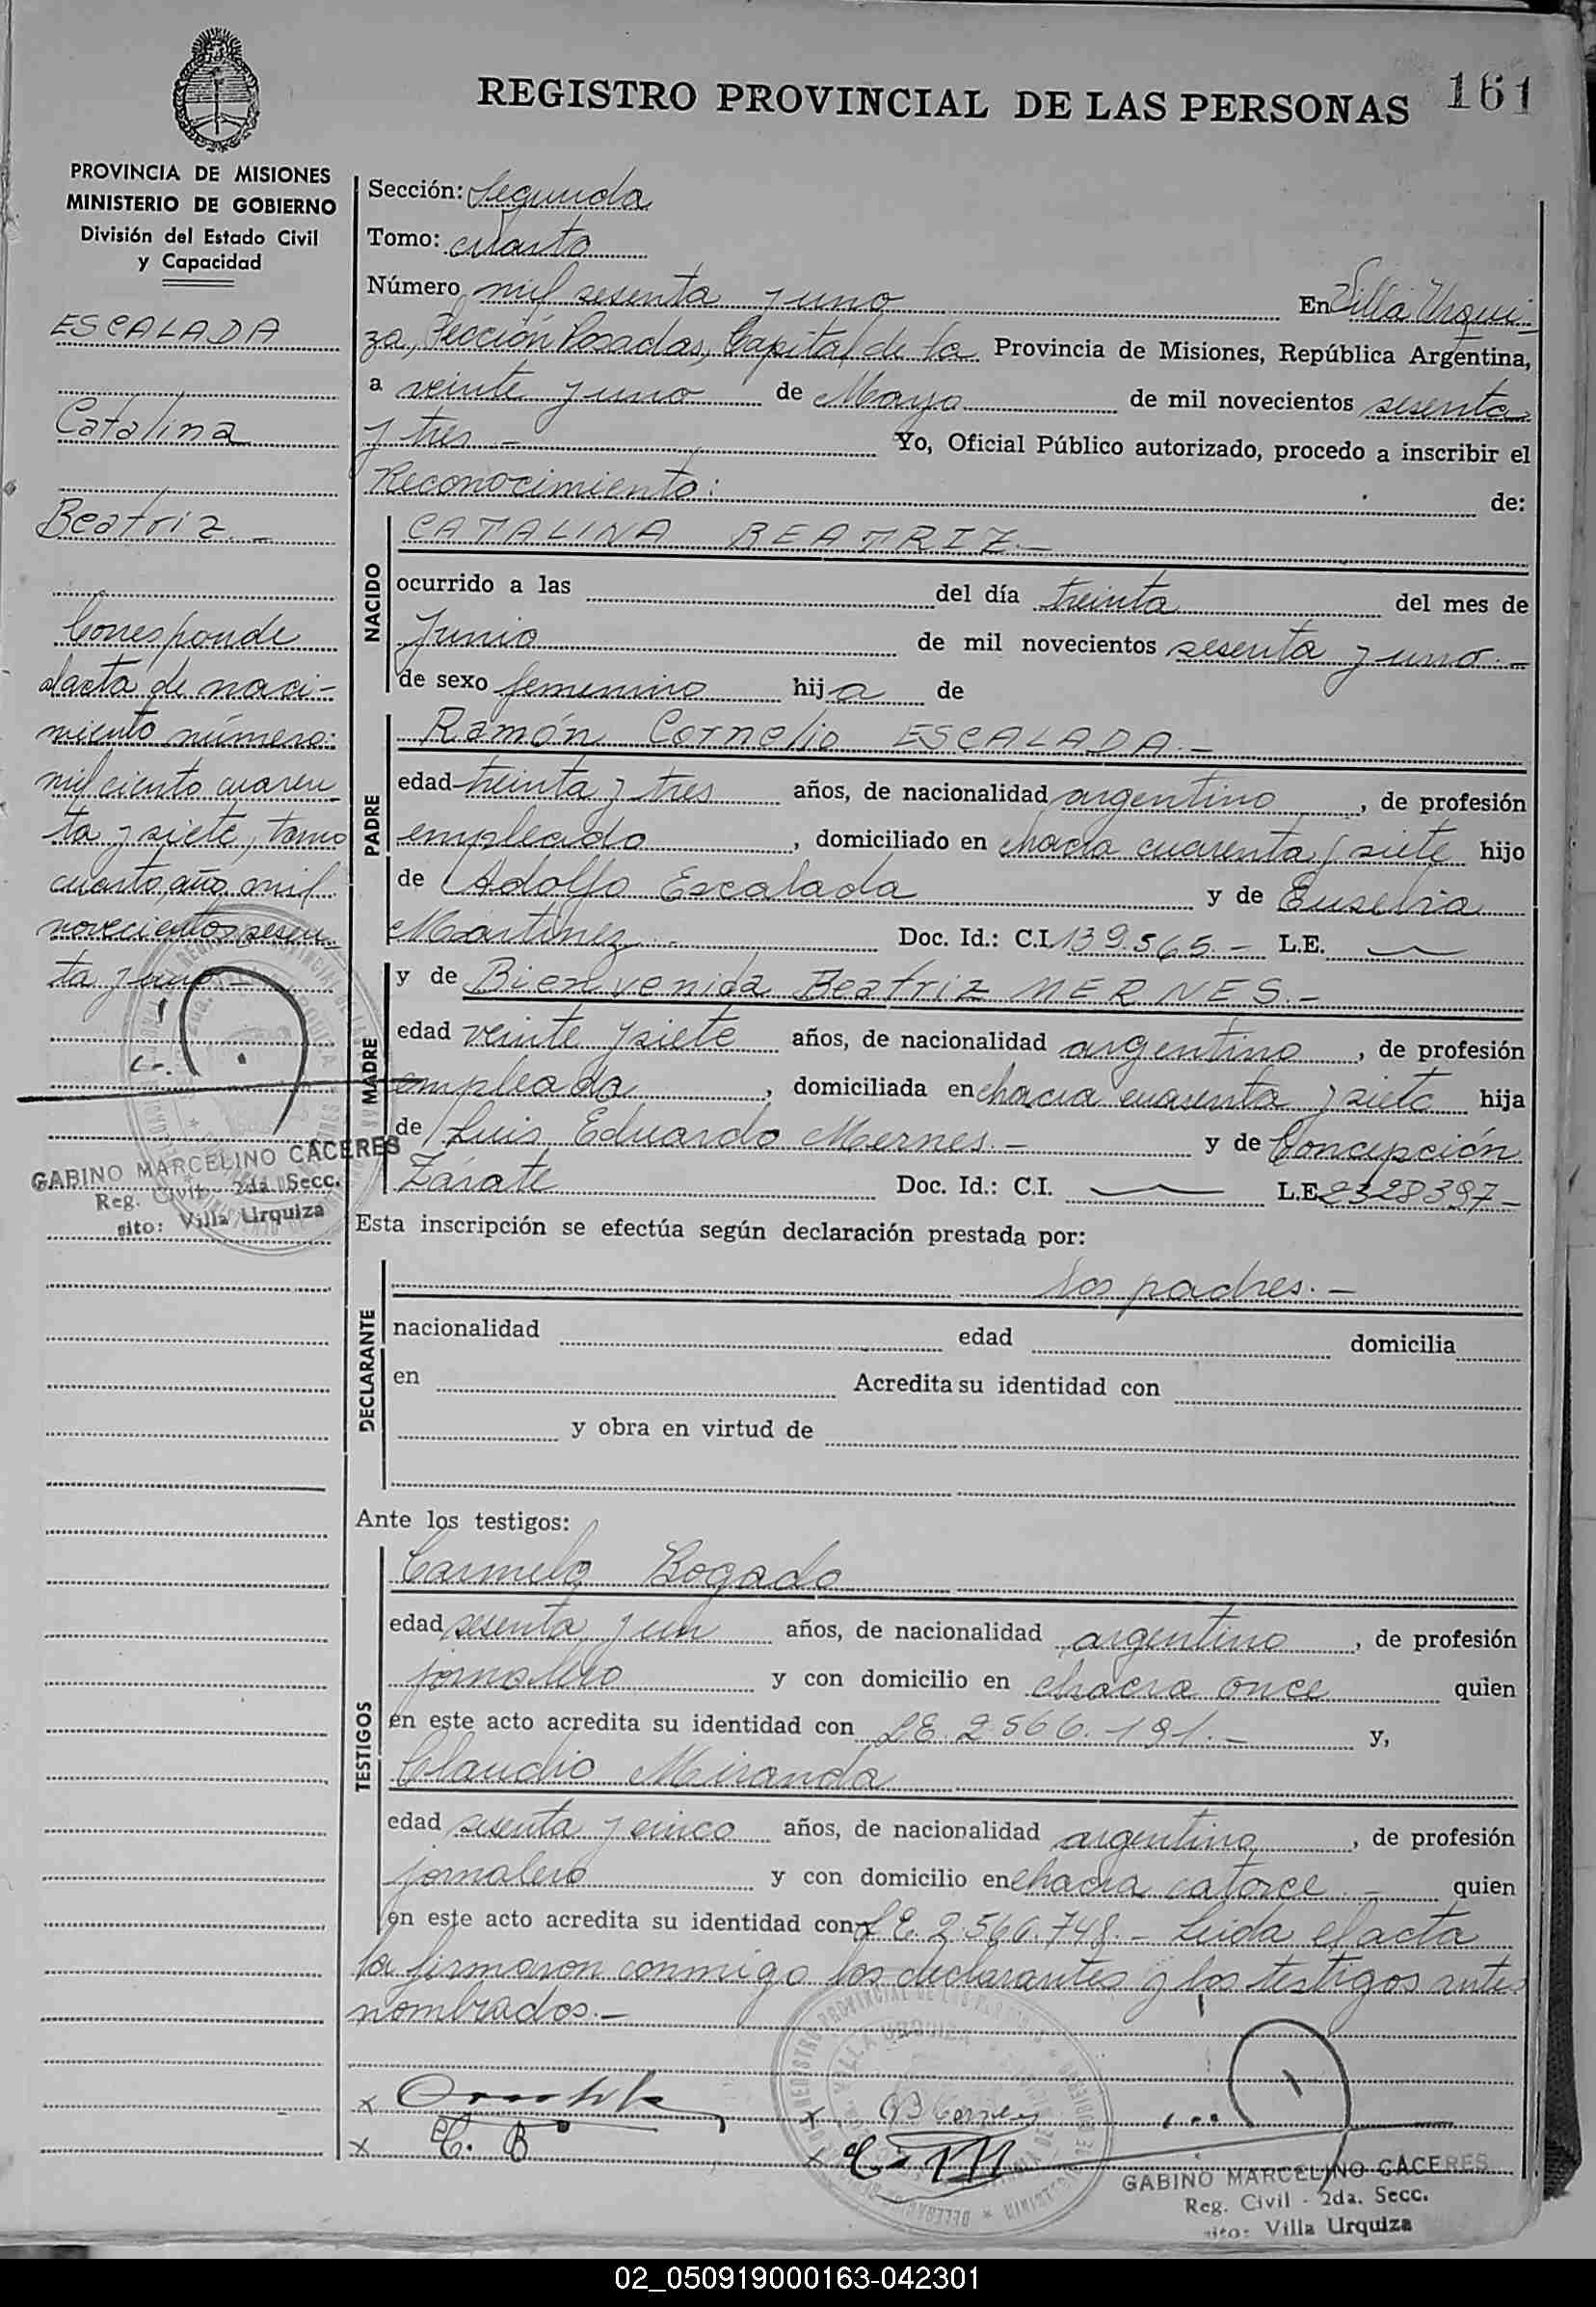 REGISTRO PROVINCIAL DE LAS PERSONAS 161
PROVINCIA DE MISIONES
MINISTERIO DE GOBIERNO
División del Estado Civil
y Capacidad
ESCALADA
Catalina
Beatriz.-
Corresponde
al acta de naci-
miento número:
mil ciento cuaren-
ta y siete, tomo
cuarto, año mil
novecientos sesen-
ta y uno.-
GABINO MARCELINO CÁCERES
Reg. Civil - 2da. Secc.
sito: Villa Urquiza
Sección: Segunda
Tomo: cuarto
Número mil sesenta y uno En Villa Urqui-
za, Sección Posadas, Capital de la Provincia de Misiones, República Argentina,
a veinte y uno de Mayo de mil novecientos sesenta
y tres.- Yo, Oficial Público autorizado, procedo a inscribir el
Reconocimiento: de:
NACIDO
CATALINA BEATRIZ.-
ocurrido a las del día treinta del mes de
Junio de mil novecientos sesenta y uno.-
de sexo femenino hija de
PADRE
Ramón Cornelio ESCALADA.-
edad treinta y tres años, de nacionalidad argentino, de profesión
empleado, domiciliado en chacra cuarenta y siete hijo
de Adolfo Escalada y de Eusebia
Martinez.- Doc. Id.: C.I. 139.565.- L.E.
MADRE
y de Bienvenida Beatriz MERNES.-
edad veinte y siete años, de nacionalidad argentina, de profesión
empleada, domiciliada en chacra cuarenta y siete hija
de Luis Eduardo Mernes.- y de Concepción
Zárate Doc. Id.: C.I. L.E. 2328397-
Esta inscripción se efectúa según declaración prestada por:
DECLARANTE
los padres.-
nacionalidad edad domicilia
en Acredita su identidad con
y obra en virtud de
Ante los testigos:
TESTIGOS
Carmelo Bogado
edad sesenta y un años, de nacionalidad argentino, de profesión
jornalero y con domicilio en chacra once quien
en este acto acredita su identidad con LE. 2.566.191.- y,
Claudio Miranda
edad sesenta y cinco años, de nacionalidad argentino, de profesión
jornalero y con domicilio en chacra catorce.- quien
en este acto acredita su identidad con LE. 2.566.748.- Leida el acta
la firmaron conmigo los declarantes y los testigos antes
nombrados.-
x x
x C. B x C. M
GABINO MARCELINO CÁCERES
Reg. Civil - 2da. Secc.
sito: Villa Urquiza
02_050919000163-042301